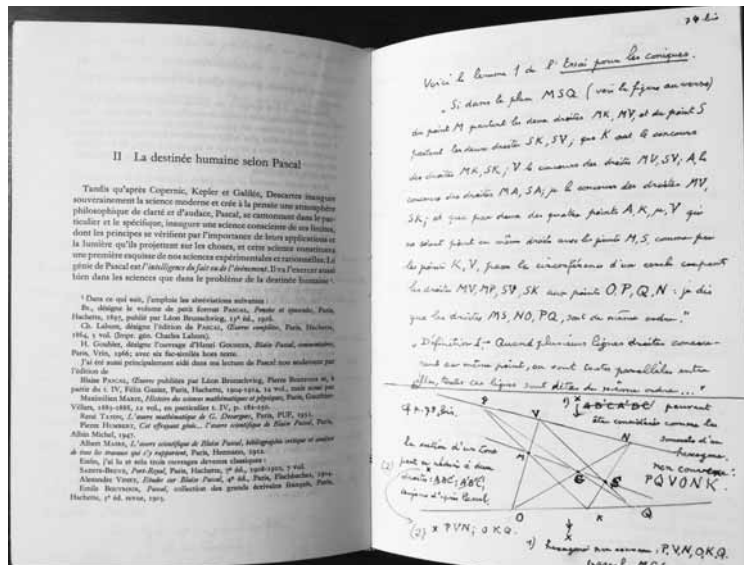 II La destinée humaine selon Pascal
Tandis qu'après Copernic, Kepler et Galilée, Descartes inaugure
souverainement la science moderne et crée à la pensée une atmosphère
philosophique de clarté et d'audace, Pascal, se cantonnant dans le par-
ticulier et le spécifique, inaugure une science consciente de ses limites,
dont les principes se vérifient par l'importance de leurs applications et
la lumière qu'ils projettent sur les choses, et cette science constitua
une première esquisse de nos sciences expérimentales et rationnelles. Le
génie de Pascal est l'intelligence du fait ou de l'événement. Il va l'exercer aussi
bien dans les sciences que dans le problème de la destinée humaine ¹.
¹ Dans ce qui suit, j'emploie les abréviations suivantes :
Br., désigne le volume de petit format PASCAL, Pensées et opuscules, Paris,
Hachette, 1897, publié par Léon Brunschvicg,
Ch. Lahure, désigne l'édition de PASCAL, Œuvres complètes, Paris, Hachette,
1864, 2 vol. (Impr. gén. Charles Lahure).
H. Gouhier, désigne l'ouvrage d'Henri GOUHIER, Blaise Pascal, commentaires,
Paris, Vrin, 1966; avec six fac-similés hors texte.
J'ai été aussi principalement aidé dans ma lecture de Pascal non seulement par
l'édition de
Blaise PASCAL, Œuvres publiées par Léon Brunschvicg, Pierre BOUTROUX et, à
partir du t. IV, Félix Gazier, Paris, Hachette, 1904-1914, 14 vol., mais aussi par
Maximilien MARIE, Histoire des sciences mathématiques et physiques, Paris, Gauthier-
Villars, 1883-1888, 12 vol., en particulier t. IV,
René TATON, L'œuvre mathématique de G. Desargues, Paris, PUF, 1951.
Pierre HUMBERT, Cet effrayant génie... l'œuvre scientifique de Blaise Pascal, Paris,
Albin Michel, 1947.
Albert MAIRE, L'œuvre scientifique de Blaise Pascal, bibliographie critique et analyse
de tous les travaux qui s'y rapportent, Paris, Hermann, 1912.
Enfin, j'ai lu et relu trois ouvrages devenus classiques :
SAINTE-BEUVE, Port-Royal, Paris, Hachette, 7ᵉ éd., 7 vol.
Alexandre VINET, Etudes sur Blaise Pascal, 4ᵉ éd., Paris, Fischbacher, 1904.
Emile BOUTROUX, Pascal, collection des grands écrivains français, Paris,
Hachette, 5ᵉ éd. revue,
74 bis
Voici le lemme 1 de l'Essai pour les coniques.
"Si dans le plan MSQ (voir la figure au verso)
du point M partent les deux droites MK, MV, et du point S
partent les deux droites SK, SV; que K soit le concours
des droites MK, SK; V le concours des droites MV, SV; A, le
concours des droites MA, SA; μ le concours des droites MV,
SK; et que par deux des quatre points A, K, μ, V qui
ne soient point en même droite avec les points M, S, comme par
les points K, V, passe la circonférence d'un cercle coupant
les droites MV, MP, SV, SK aux points O, P, Q, N : je dis
que les droites MS, NO, PQ, sont de même ordre."
"Définition 1. - Quand plusieurs lignes droites concou-
rent au même point, ou sont toutes parallèles entre
elles, toutes ces lignes sont dites de même ordre..."
P V N
M S
O K Q
peuvent
être considérés comme les
sommets d'un
hexagone
non convexe
PQVONK.
la section d'un cone
(2)
(2) x PVN; OKQ.
x
1) hexagone non convexe : P, V, N, O, K, Q